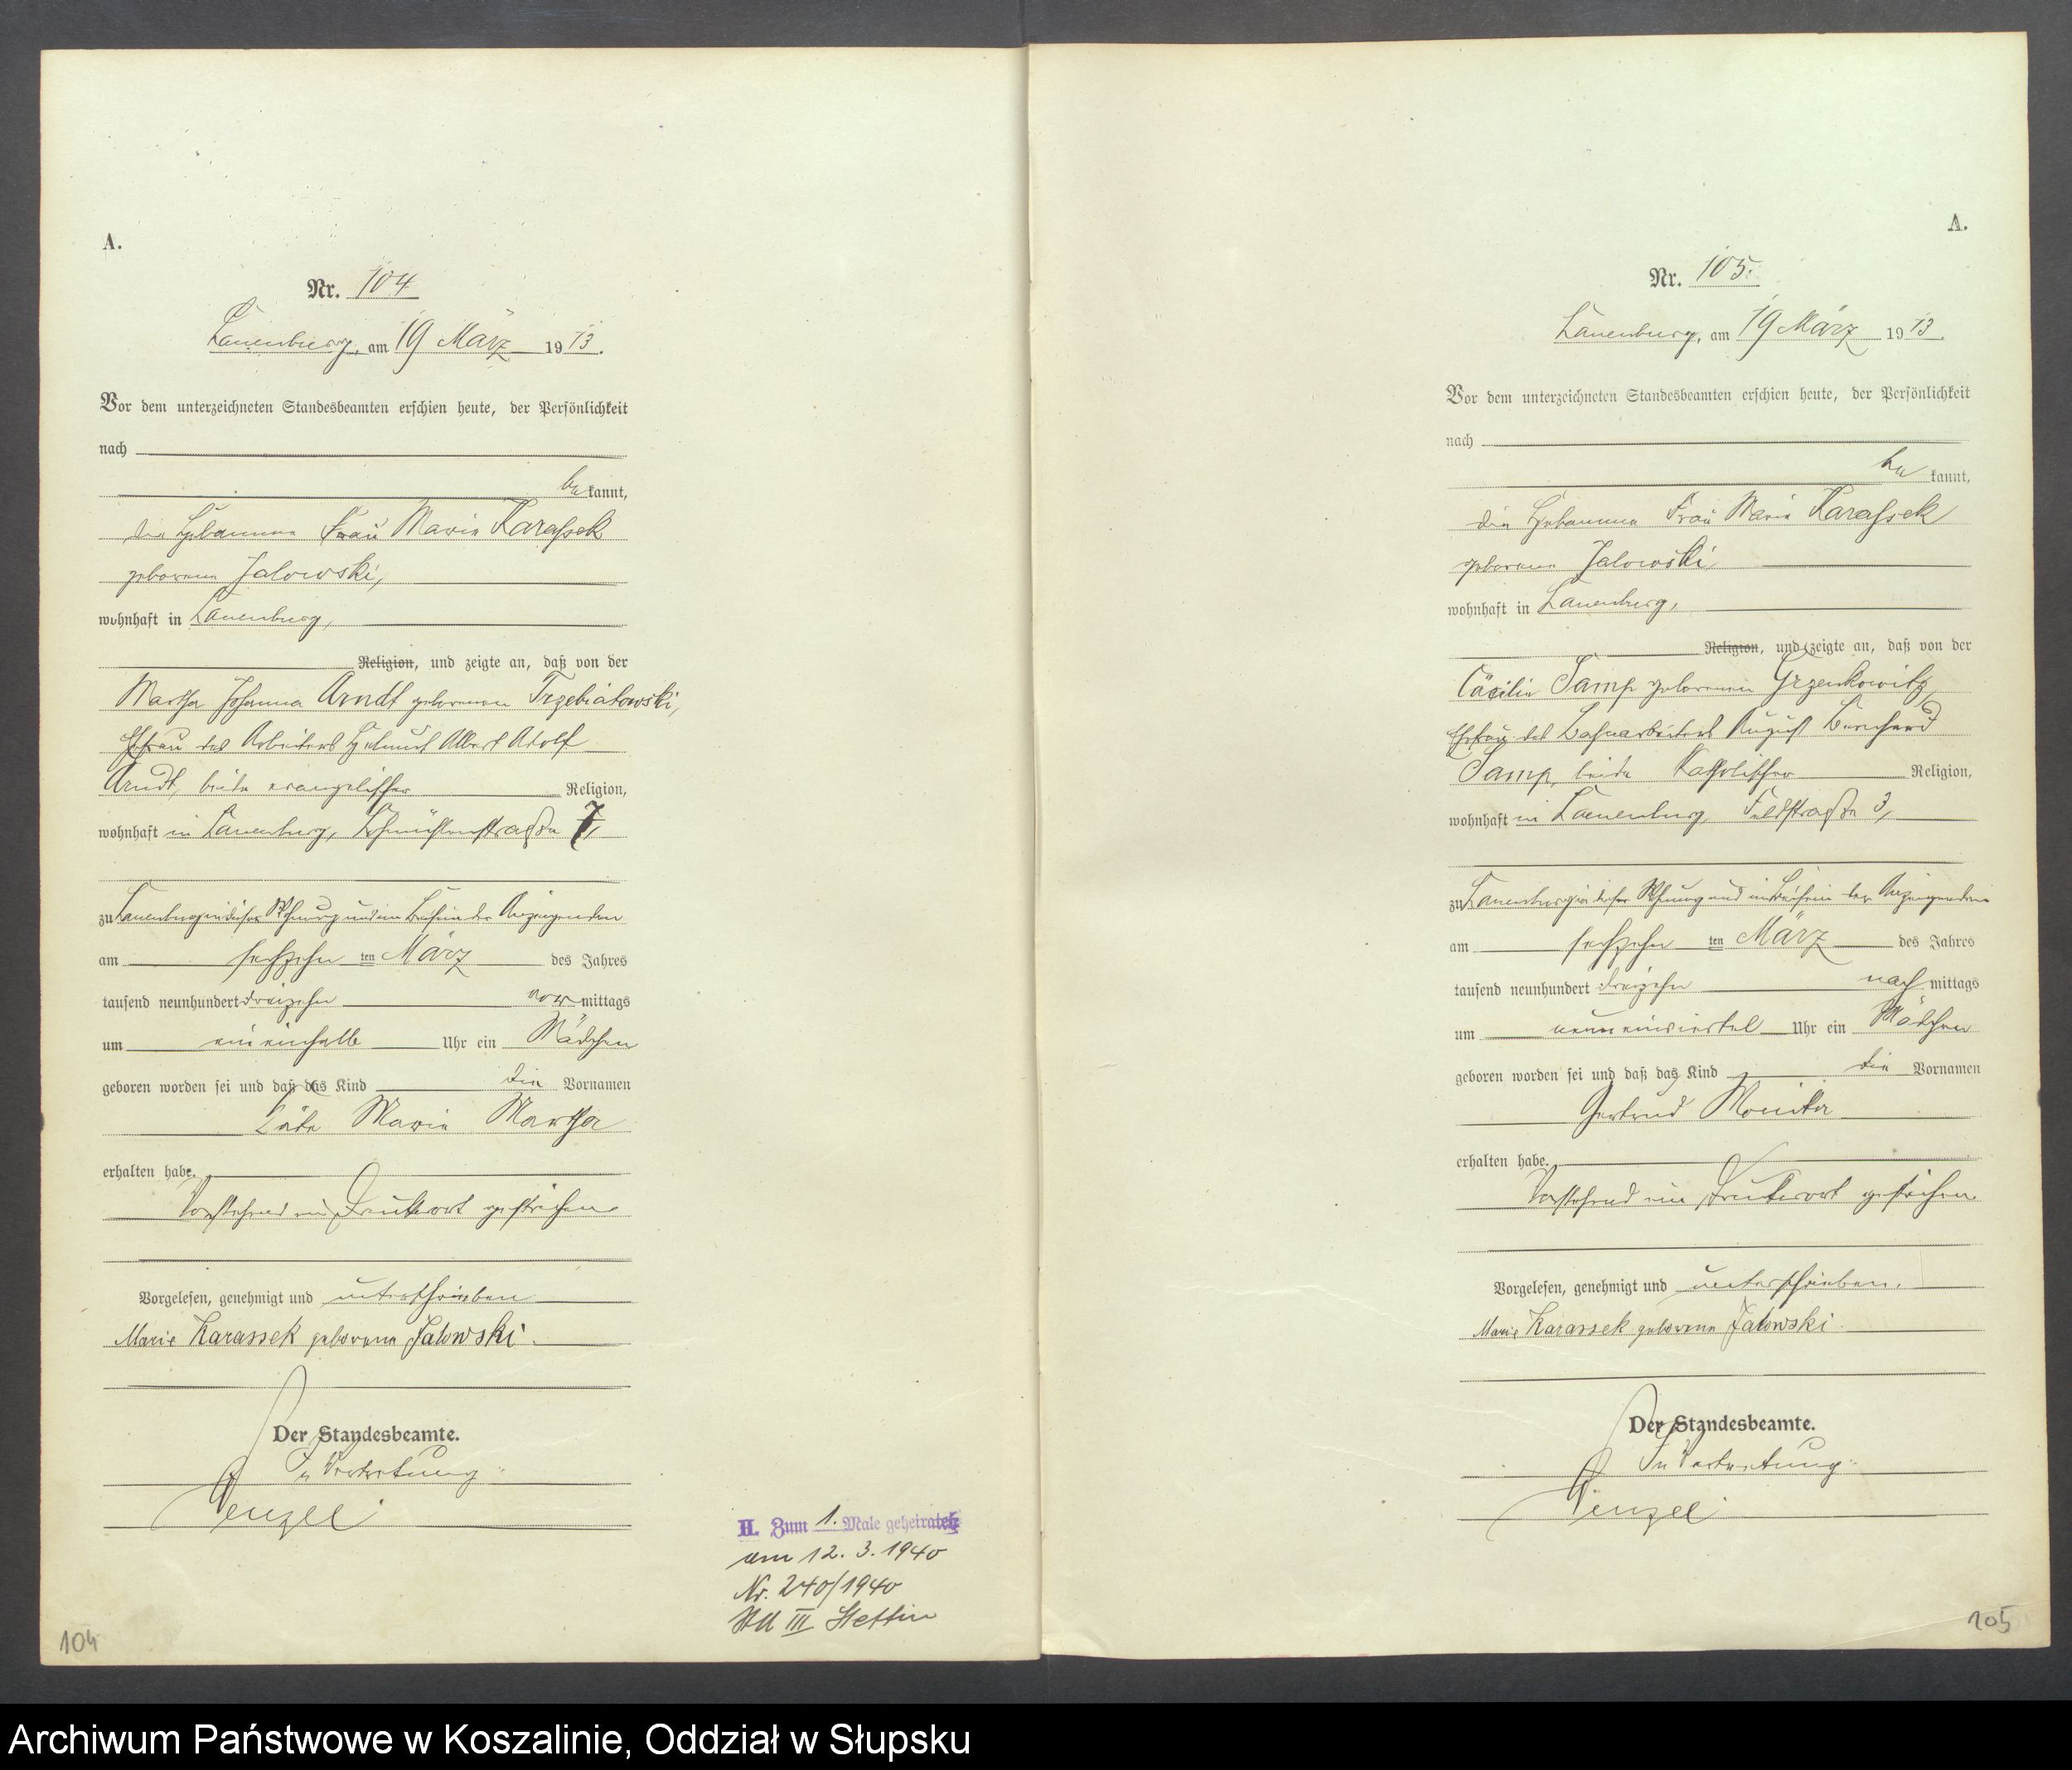 A.
Nr. 104
Lauenburg, am 19 März 1913.
Vor dem unterzeichneten Standesbeamten erschien heute, der Persönlichkeit
nach
be kannt,
die Hebamme Frau Marie Karassek
geborene Jalowski,
wohnhaft in Lauenburg,
Religion, und zeigte an, daß von der
Martha Johanna Arndt geborenen Trzebiatowski,
Ehefrau des Arbeiters Helmut Albert Adolf
Arndt, beide evangelischer Religion,
wohnhaft in Lauenburg, Lohmühlenstraße 7,
zu Lauenburg in dieser Wohnung und im Beisein der Anzeigenden
am sechzehn ten März des Jahres
tausend neunhundert dreizehn vor mittags
um ein einhalb Uhr ein Mädchen
geboren worden sei und daß das Kind die Vornamen
Käte Marie Martha
erhalten habe.
Vorstehend ein Druckwort gestrichen.
Vorgelesen, genehmigt und unterschrieben
Marie Karassek geborene Jalowski.
Der Standesbeamte.
In Vertretung:
Wenzel
II. Zum 1. Male geheiratet
am 12. 3. 1940
Nr. 240/1940
StA III Stettin
104
A.
Nr. 105.
Lauenburg, am 19 März 1913.
Vor dem unterzeichneten Standesbeamten erschien heute, der Persönlichkeit
nach
be kannt,
die Hebamme Frau Marie Karassek
geborene Jalowski,
wohnhaft in Lauenburg,
Religion, und zeigte an, daß von der
Cäcilie Jamp geborenen Grzenkowitz,
Ehefrau des Bahnarbeiters August Bernhard
Jamp, beide katholischer Religion,
wohnhaft in Lauenburg, Feldstraße 3,
zu Lauenburg in dieser Wohnung und im Beisein der Anzeigenden
am sechzehn ten März des Jahres
tausend neunhundert dreizehn nach mittags
um neun einviertel Uhr ein Mädchen
geboren worden sei und daß das Kind die Vornamen
Gertrud Monika
erhalten habe.
Vorstehend ein Druckwort gestrichen.
Vorgelesen, genehmigt und unterschrieben.
Marie Karassek geborene Jalowski.
Der Standesbeamte.
In Vertretung:
Wenzel
105
Archiwum Państwowe w Koszalinie, Oddział w Słupsku